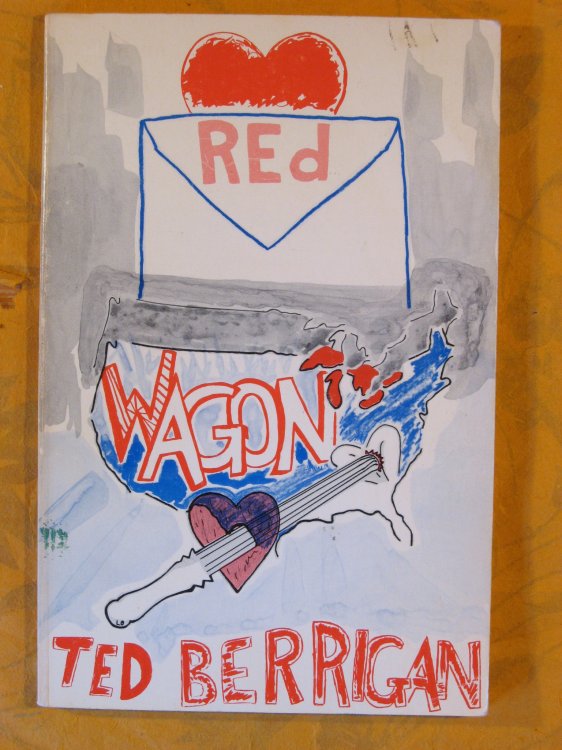 REd
WAGON
TED BERRIGAN